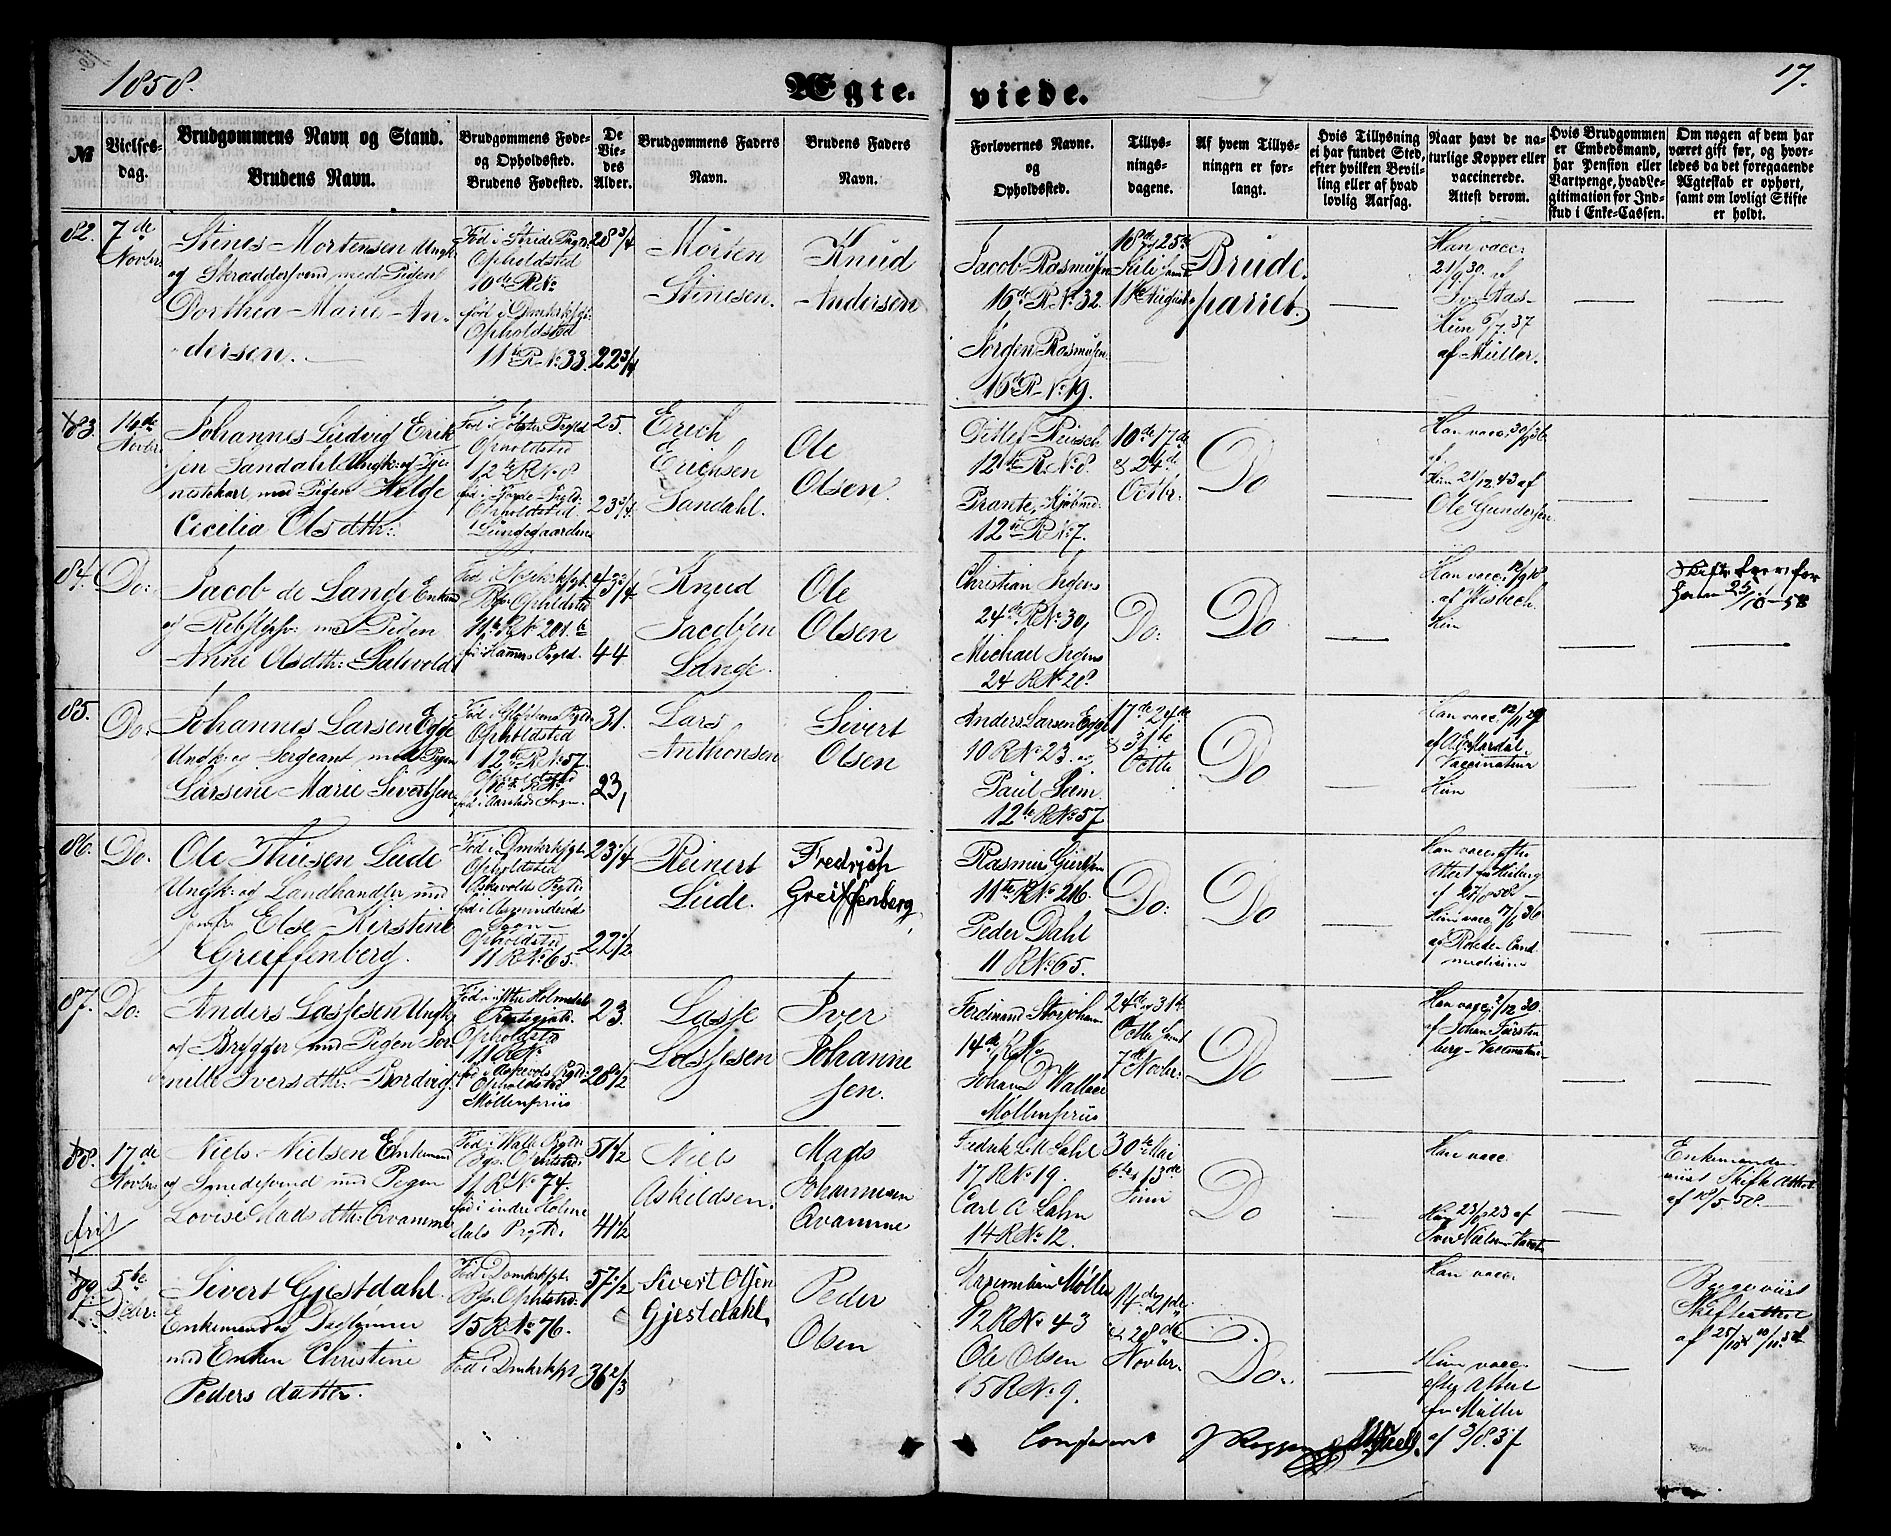 1858.
Ægte.
viede.
17.
№
Vielses-
dag.
Brudgommens Navn og Stand.
Brudens Navn.
Brudgommens Føde-
og Opholdssted.
Brudens Fødested.
De
Vie-
des
Alder.
Brudgommens Faders
Navn.
Brudens Faders
Navn.
Forlovernes Navne.
og
Opholdssted.
Tillys-
nings-
dagene.
Af hvem Tillys-
ningen er for-
langt.
Hvis Tillysning
ei har fundet Sted,
efter hvilken Bevil-
ling eller af hvad
lovlig Aarsag.
Naar havt de na-
turlige Kopper eller
vaccinerede.
Attest derom.
Hvis Brudgommen
er Embedsmand,
har Pension eller
Vartpenge, hvad Le-
gitimation for Ind-
skud i Enke-Cassen.
Om nogen af dem har
været gift før, og hvor-
ledes da det foregaaende
Ægteskab er ophørt,
samt om lovligt Skifte
er holdt.
82.
7de
Novbr
Stines Mortensen Ungk.
og Skræddersvend med Pigen
Dorthea Marie An-
dersen.
Opholdssted
10de R. No
fød i Dmkrksgt.
Opholdssted
11te R. No 33.
28 3/4
22 3/4
Morten
Stinesen.
Knud
Andersen
Jacob Rasmusen
16de R. No 32.
Jørgen Rasmusen
16de R. No 19.
18de og 25de
Juli samt
1ste August
Brude-
parret.
Han vacc.
21/9 30. af
Hun 6/7. 37
af Müller.
83.
14de
Novbr
Johannes Ludvig Erik
sen Sandahl Ungk. og Tje
nestekarl, med Pigen Helge
Cecilia Olsdtr:
Fød i Jølster Pgld
Opholdssted
12te R. No 8
Opholdssted
Lungegaarden
25.
23 3/4.
Erich
Erichsen
Sandahl.
Ole
Olsen,
Ditlef Reusch
12te R. No 8.
Prante, Kjøbmd
12te R. No 7.
10de 17de
& 24de
Octbr:
Do
Han vacc. 30/9 36
af
Hun 21/12. 43 af
Ole Gundersen.
84.
Do:
Jacob de Lange Enkem.
og Rebslgsv: med Pigen
Anne Olsdtr: Salevold
11te R. No 201. b
fød i Hammers Pgld.
43 3/4
44
Knud
Jacobsen
Lange.
Ole
Olsen
Christian Irgens
24de R. No 30,
Michael Irgens
24 R. No 28.
Do:
Do
af Wisbech.
Hun
25/10-58
85.
Do:
Johannes Larsen Egge
Ungk: og Sergeant, med Pigen
Larsine Marie Sivertsen
Opholdssted
12te R. No 57.
Opholdssted
10de R. No
fød i Aarstads Sogn
31.
23,
Lars
Anthonsen
Sivert
Olsen
Anders Larsen Egge
10 R. No 23. og
Paul Riem
12te R. No 57
17de 24de
& 31te
Octbr
Do
Han vacc. 12/11 29
Vaccinateur
Hun
86.
Do.
Ole Thiesen Lude
Ungk: og Landhandler med
Jomfr: Else Kirstine
Greiffenberg.
Fød i Dmkrksgt.
Opholdssted
Askevolds Pgld.
Sogn
Opholdssted
11 R. No 65.
23 1/4
22 1/2
Reinert
Lude.
Fredrich
Greiffenberg,
Rasmus Giertsen
11te R. No 216.
Peder Dahl
11 R. No 65.
Do:
Do
Han vacc. efter
Hun vacc. 17/6 36
medicine
87.
Do:
Anders Lassesen Ungk.
og Brygger med Pigen Por-
nille Iversdtr: Bordvig
Præstegjæld.
Opholdssted
11 R. No
fød i Askevolds Pgld:
Opholdssted
Møllenpriis
23.
28 1/2
Lasse
Lassesen
Iver
Johanne
sen.
Ferdinand Storjohann
14de R. No
Johan D Wallace
Møllenpriis
24de og 31te
Octbr samt
7de Novbr:
Do
Han vacc. 2/12 30.
af Johan Fürsten
berg - Vaccinateur
88.
17de
Novbr
frit
Niels Nielsen Enkemand
og Smedesvend med Pigen
Lovise Madsdtr: Qvamme
11 R. No 74.
fød i indre Holme
dals Pgld.
51 1/2
41 1/2
Niels
Askildsen.
Mads
Johannesen
Qvamme
Fredrik L M Dahl
17 R. No 19.
Carl A Lahn
14 R. No 12.
30te Mai
6te & 13de
Juni
Do
Han vacc.
Hun 23/6 23 af
Iver Nielsen
Enkemanden
viist Skifte Attest
af 18/5. 58.
89.
5te
Decbr:
Sivert Gjestdahl.
Enkemand og Daglønner
med Enken Christine
Peders datter.
Fød i Domkrksgt.
15 R. No 76.
Fød i Dmkrksgt
57 1/2
36 2/3
Sivert Olsen
Gjestdahl,
Peder
Olsen
Maximilian Møller
12 R. No 43
Ole Olsen
15 R. No 9.
14de 21de
& 28de
Novbr.
Do.
Han vacc.
Hun vacc.
efter Attest
fra Müller
af 9/8. 37
Begge viist
Skifteattest
Confereret